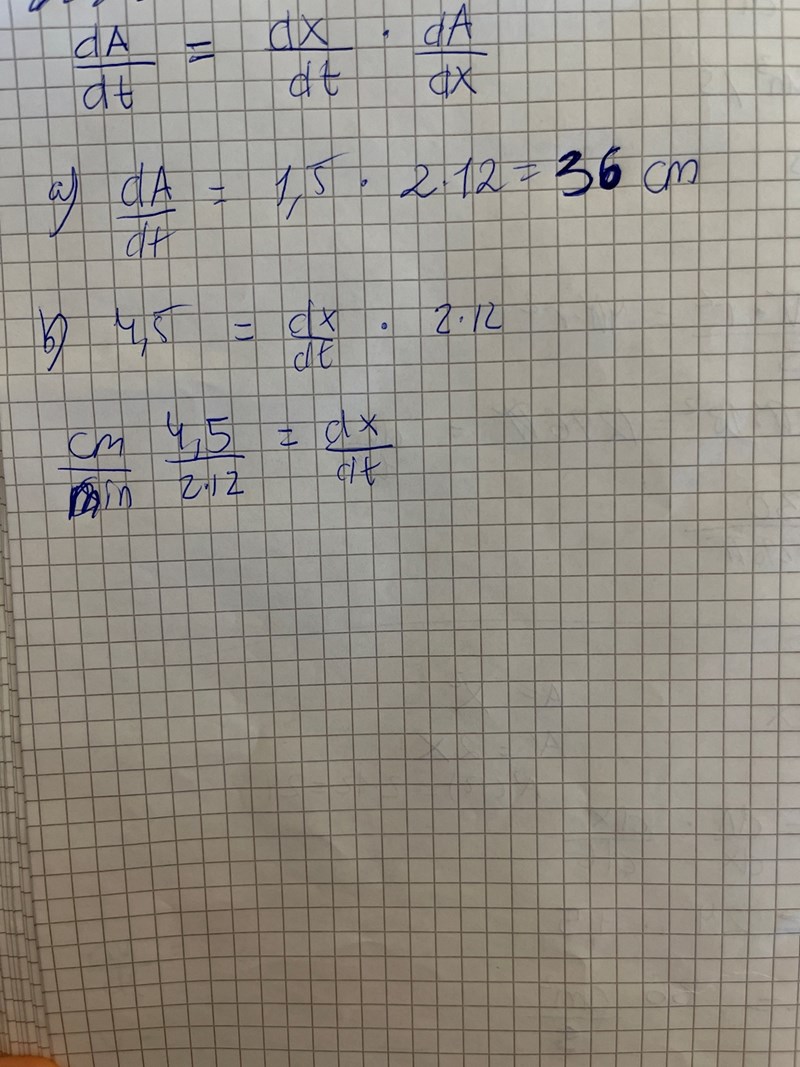 dA/dt = dx/dt · dA/dx
a) dA/dt = 1,5 · 2·12 = 36 cm
b) 4,5 = dx/dt · 2·12
cm/min 4,5/2·12 = dx/dt